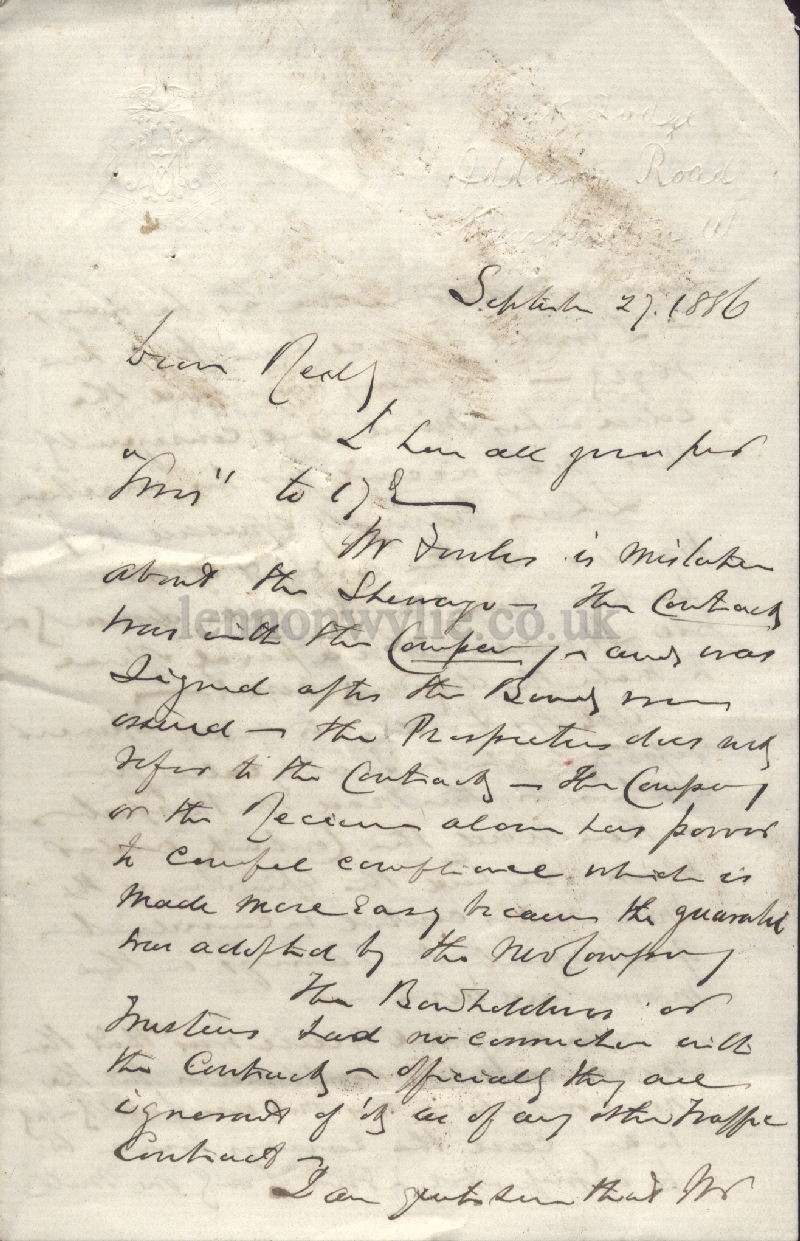 Lodge
Addison Road
Kensington W
September 27. 1886
Dear Really
I have all yours per
"Arms" to 17th
Mr Fowler is mistaken
about the Shenango — the Contract
was with the Company — and was
signed after the Bonds were
issued — the Prospectus does not
refer to the Contract — the Company
or the Receiver alone has power
to compel compliance which is
made more easy because the guarantee
was adopted by the New Company
The Bondholders or
Trustees had no connection with
the Contract — officially they are
ignorant of it as of any other Traffic
Contract —
I am quite sure that Mr
lennonwylie.co.uk